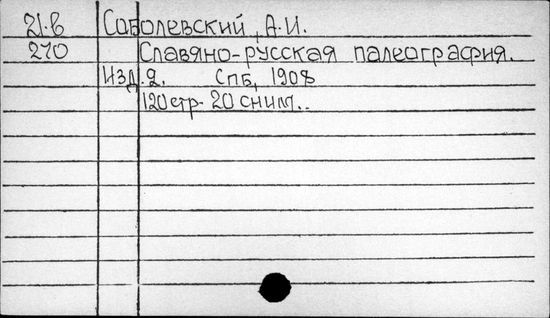 21.в Соболевский, А.И.
270 Славяно-русская палеография.
Изд. 2. Спб, 1908
120 стр. 20 сним..